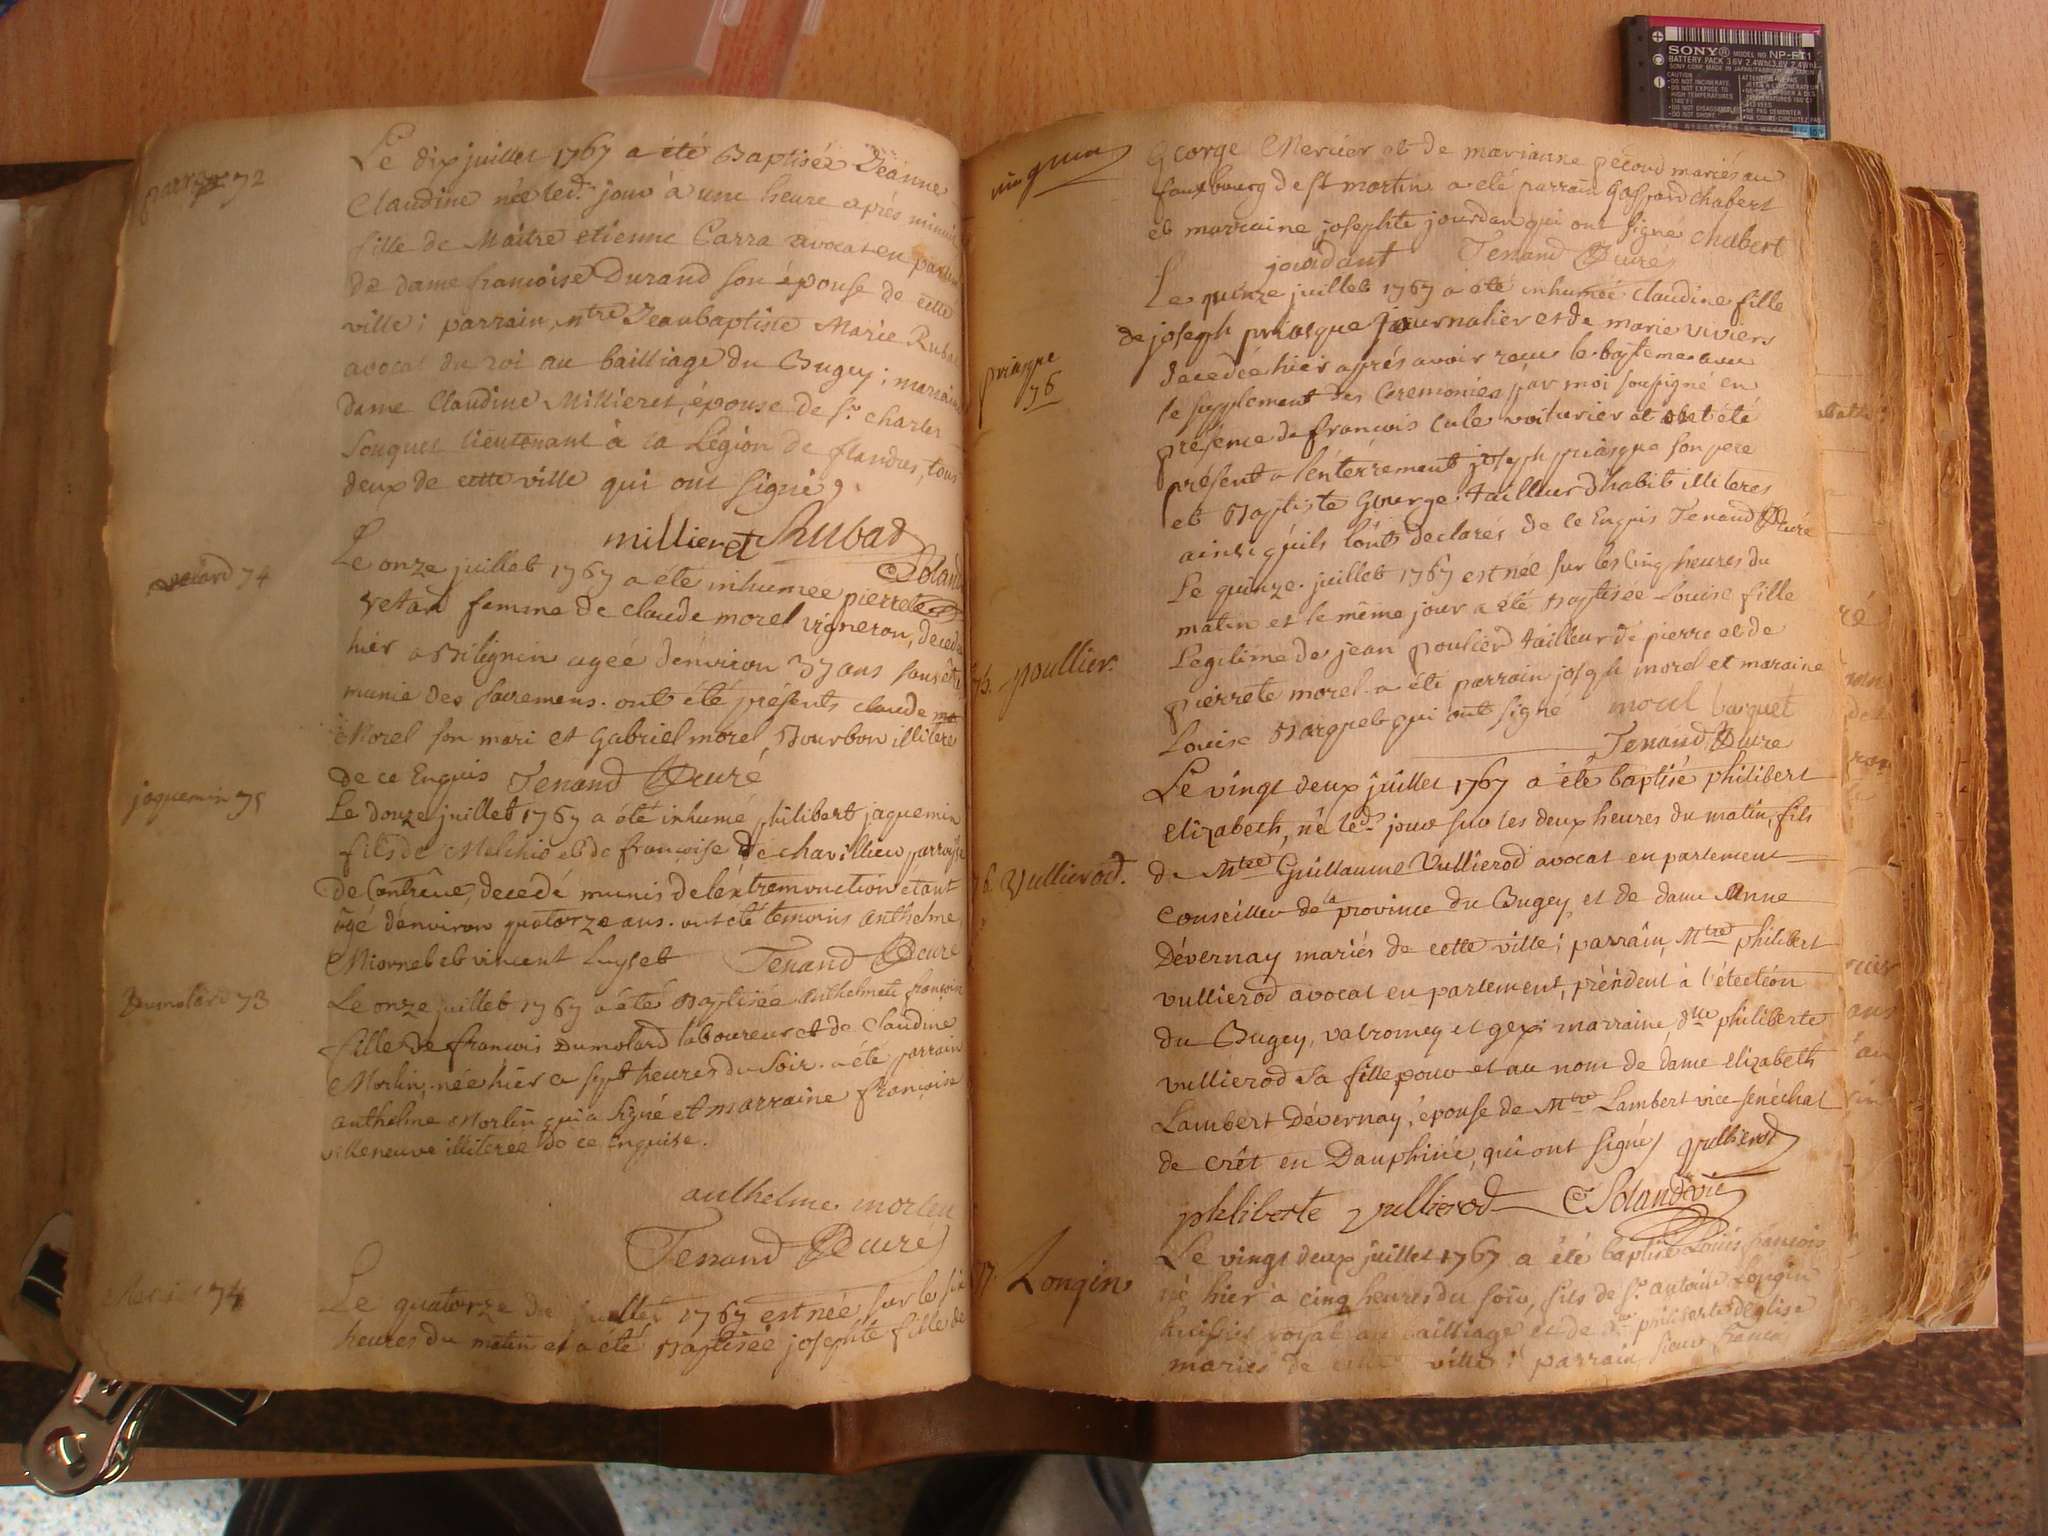 parra 72
Le dix juillet 1767 a été Baptisée Jeanne
Claudine née led. jour à une heure après minuit
fille de Maitre etienne Carra avocat en
de dame francoise Durand son épouse de cette
ville; parrain, mtre Jeanbaptiste Marie Rubat
avocat du roi au bailliage du Bugey; marraine
dame Claudine Millieret, épouse de Sr. charles
Souquet lieutenant à la Légion de flandres, tous
deux de cette ville qui ont signé
millieret Rubat
Roland
vetard 74
Le onze juillet 1767 a été inhumée pierrete
vetard femme de claude morel vigneron, decedée
hier a Bilignin agée denviron ans sans être
munie des sacremens. ont été présents claude
Morel son mari et Gabriel morel, Bourbon illiteré
de ce Enquis Tenand Curé
jaquemin 75
Le douze juillet 1767 a été inhumé philibert jaquemin
fils de Melchio et de françoise de chavillieu parroisse
de Contrêve, decédé munis de léxtremonction etant
âgé denviron quatorze ans. ont été temoins anthelme
Miornet et vincent luyset Tenand Curé
Dumolard 73
Le onze juillet 1767 a été Baptisée anthelmete francoise
fille de francois Dumolard laboureur et de claudine
Morlin, née hier a sept heures du soir. a été parrain
anthelme Morlin qui a signé et marraine françoise
villeneuve illiteree de ce Enquise.
anthelme morlin
Tenand Curé
74
Le quatorze de juillet 1767 est née sur les six
heures du matin et a été Baptisée josephte fille de
George Mercier et de marianne pecoud mariés au
fauxbourg de St martin a été parrain Gaspard chabert
et marraine josephte jourdan qui ont signé chabert
jourdant Tenand Curé
priasque
76
Le quinze juillet 1767 a été inhumée claudine fille
de joseph priasque journalier et de marie viviers
decedée hier après avoir recus le bapteme avec
le supplement des Ceremonies par moi soussigné en
présence de francois cule voiturier et ont été
présent a lenterrement joseph priasque son pere
et Baptiste George tailleur dhabit illiteres
ainsi quils lont declarés de ce Enquis Tenand Curé
75. poullier.
Le quinze. juillet 1767 est née sur les cinq heures du
matin et le même jour a été Baptisée Louise fille
Legitime de jean poulier tailleur de pierre et de
pierrete morel. a été parrain joseph morel et maraine
Louise Barquet qui ont signé morel barquet
Tenand Curé
76. Vullierod.
Le vingt deux juillet 1767 a été baptisé philibert
elizabeth, né led. jour sur les deux heures du matin, fils
de Mtre Guillaume Vullierod avocat en parlement
conseiller de la province du Bugey et de dame Anne
Dévernay mariés de cette ville; parrain, Mtre philibert
vullierod avocat en parlement, président à l'élection
du Bugey, valromey et gex; marraine dlle philiberte
vullierod sa fille pour et au nom de dame elizabeth
Lambert Dévernay, épouse de Mtre Lambert vice sénéchal
de crêt en Dauphiné, qui ont signé vullierod
philiberte vullierod Roland vic
77. Longin
Le vingt deux juillet 1767 a été baptisé Louis francois
né hier à cinq heures du soir, fils de Sr. antoine Longin
huissier royal au bailliage et de philiberte Deglise
mariés de cette ville; parrain, sieur
SONY® MODEL NO NP-FT1
BATTERY PACK 3.6V 2.4Wh
CAUTION
•DO NOT INCINERATE
•DO NOT EXPOSE TO
HIGH TEMPERATURES
(140°F)
•DO NOT DISASSEMBLE
•DO NOT SHORT